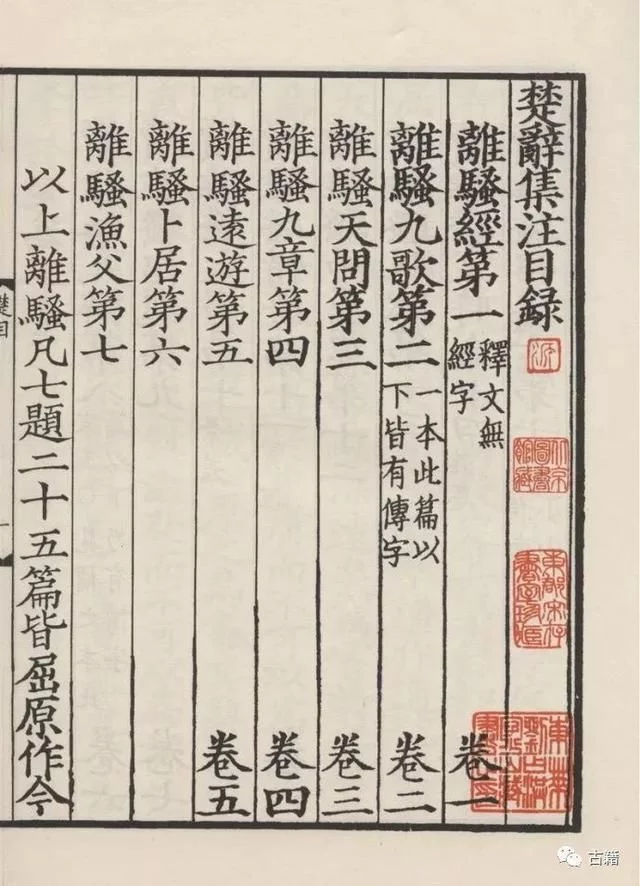 楚辭集注目録
離騷經第一 釋文無經字 卷一
離騷九歌第二 一本此篇以下皆有傳字 卷二
離騷天問第三 卷三
離騷九章第四 卷四
離騷遠遊第五 卷五
離騷卜居第六
離騷漁父第七
以上離騷凡七題二十五篇皆屈原作今
楚目
北京圖書館藏
古籍